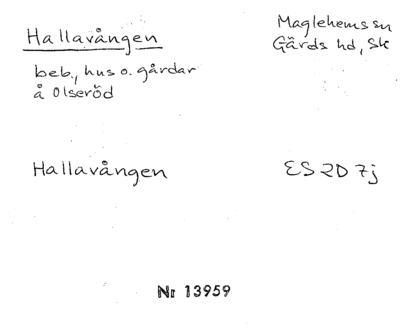 Hallavången
Maglehems sn
Gärds hd, Sk
beb., hus o. gårdar
å Olseröd
Hallavången
ES 2D 7j
Nr 13959